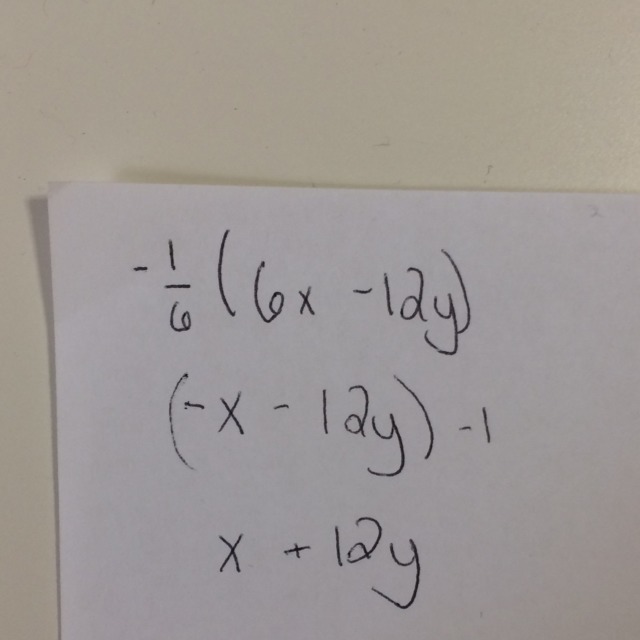 -1/6 (6x - 12y)
(-x - 12y) -1
x + 12y